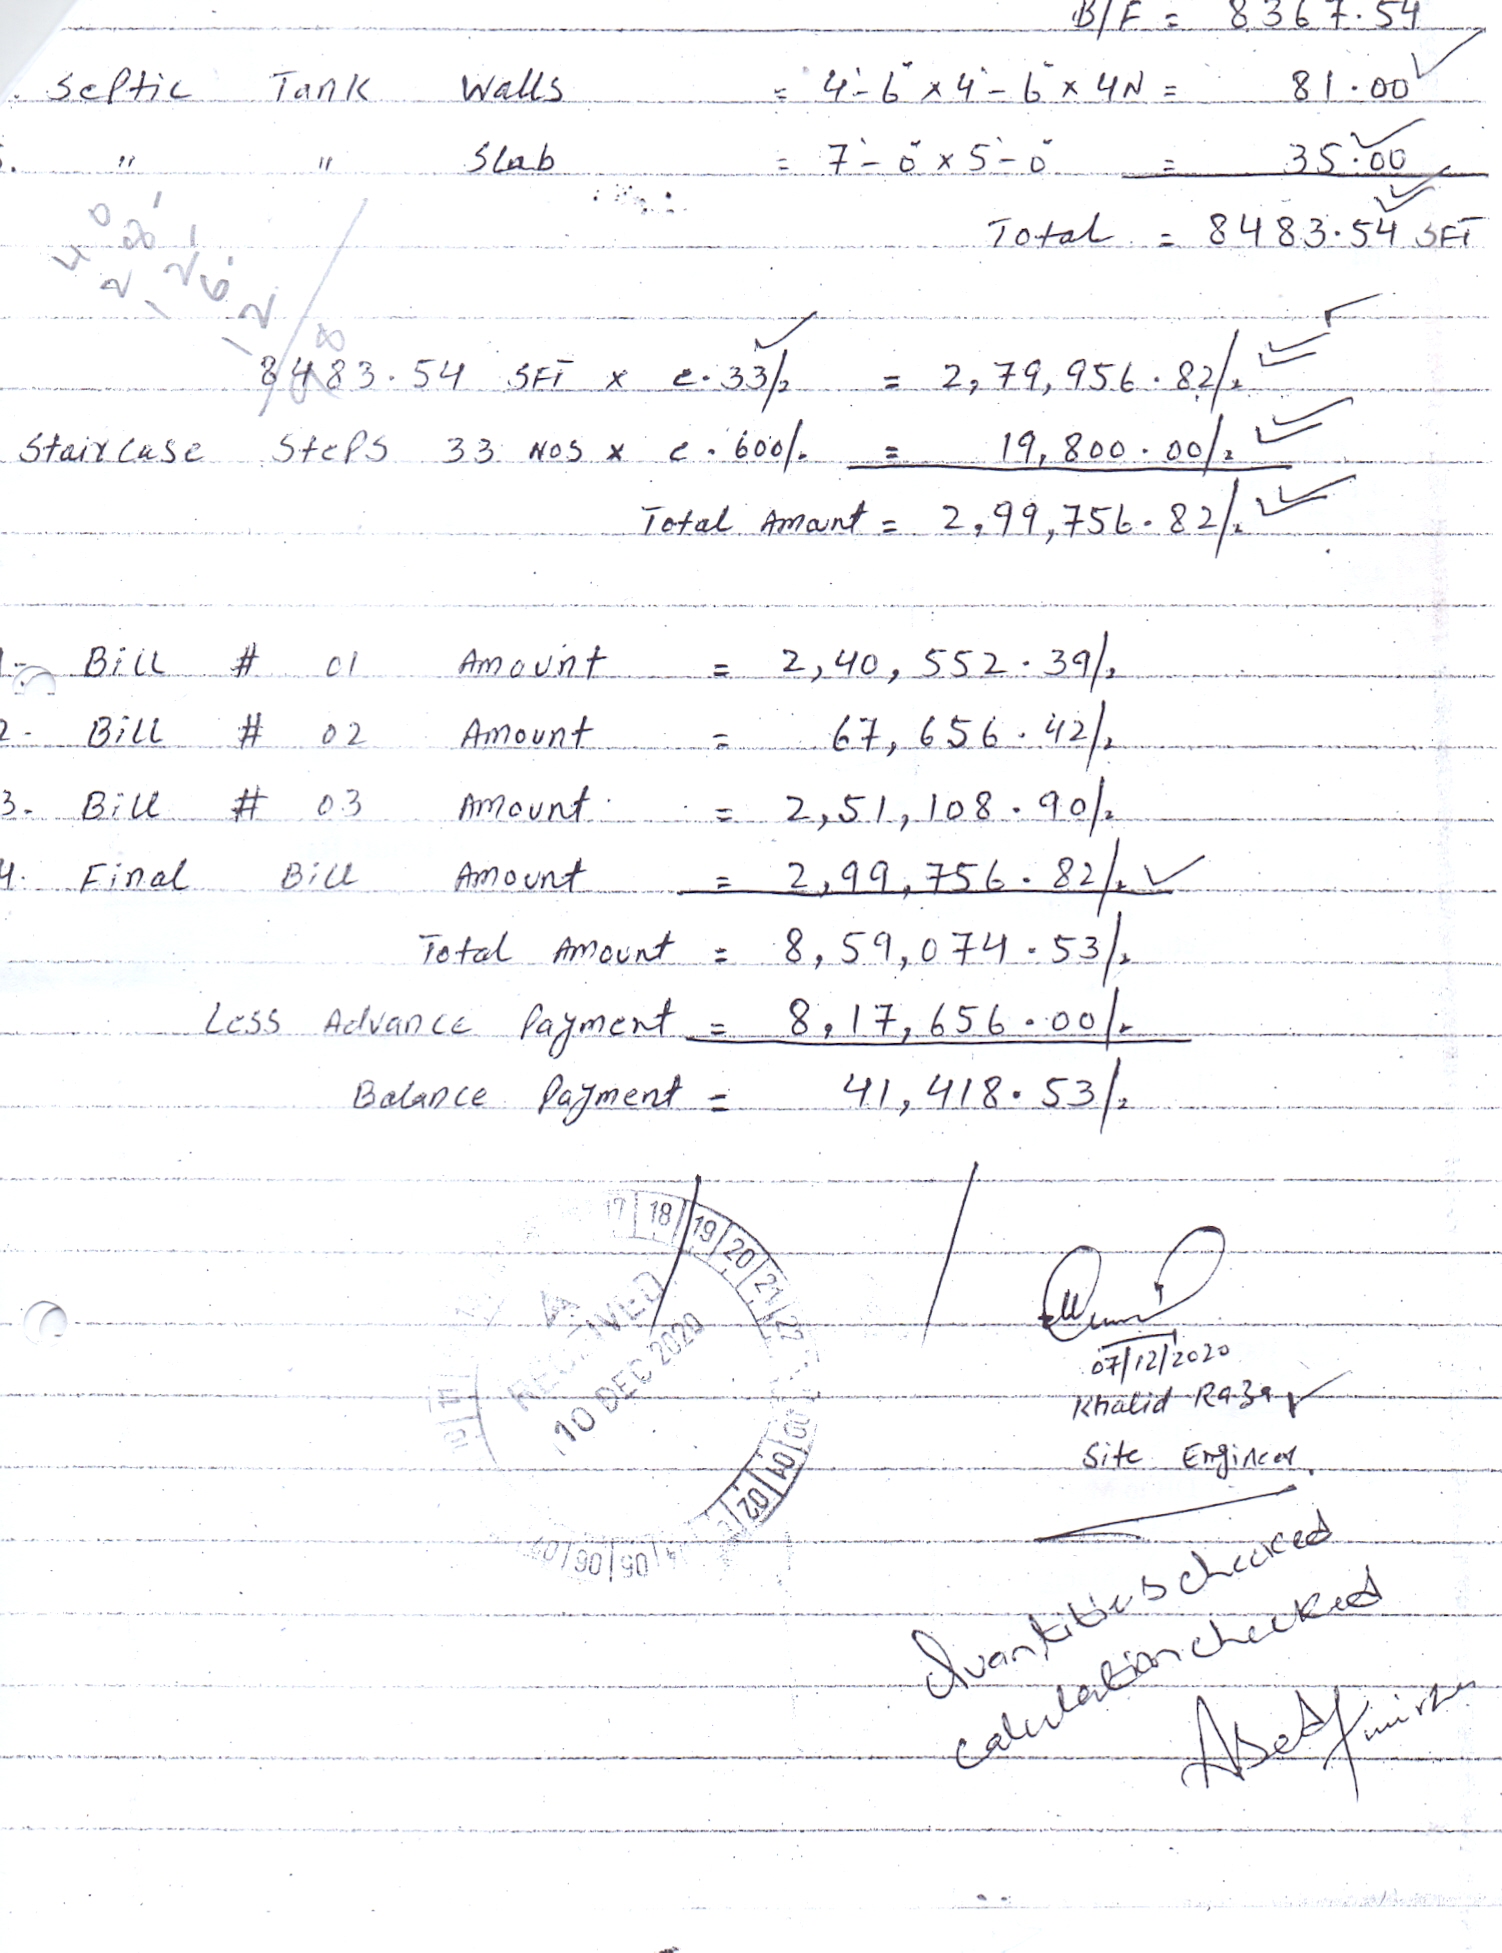 B/F = 8367.54
Septic Tank Walls = 4'-6" x 4'-6" x 4N = 81.00
" " Slab = 7'-0" x 5'-0" = 35.00
Total = 8483.54 SFT
8483.54 SFT x @.33/- = 2,79,956.82/-
StairCase Steps 33 NOS x @.600/- = 19,800.00/-
Total Amount = 2,99,756.82/-
1- Bill # 01 Amount = 2,40,552.39/-
2- Bill # 02 Amount = 67,656.42/-
3- Bill # 03 Amount = 2,51,108.90/-
4. Final Bill Amount = 2,99,756.82/-
Total Amount = 8,59,074.53/-
Less Advance Payment = 8,17,656.00/-
Balance Payment = 41,418.53/-
17 18 19 20 21 22
RECEIVED
10 DEC 2020
07/12/2020
Khalid Raza
Site Engineer
Quantities checked
calculation checked